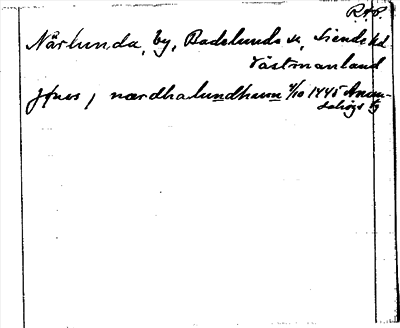 R.A.P.
Närlunda, by, Badelunda sn, Siende hd
Västmanland
Jfnes, nærdhalundhaum 4/10 1445 Anun-
dahögs tg